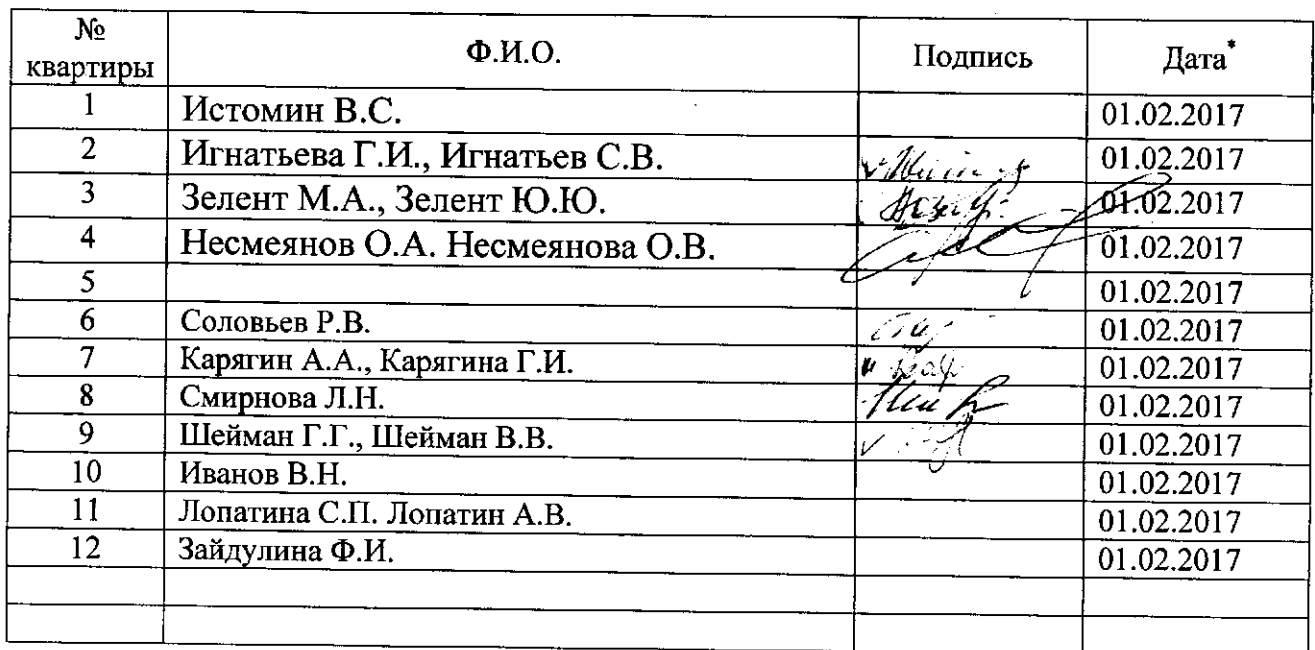 № квартиры Ф.И.О. Подпись Дата*
1 Истомин В.С. 01.02.2017
2 Игнатьева Г.И., Игнатьев С.В. 01.02.2017
3 Зелент М.А., Зелент Ю.Ю. 01.02.2017
4 Несмеянов О.А. Несмеянова О.В. 01.02.2017
5 01.02.2017
6 Соловьев Р.В. 01.02.2017
7 Карягин А.А., Карягина Г.И. 01.02.2017
8 Смирнова Л.Н. 01.02.2017
9 Шейман Г.Г., Шейман В.В. 01.02.2017
10 Иванов В.Н. 01.02.2017
11 Лопатина С.П. Лопатин А.В. 01.02.2017
12 Зайдулина Ф.И. 01.02.2017